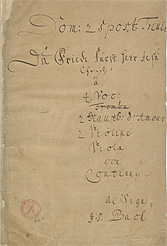 Dom: 25 post Trinit
Du Friede Fürst Herr Jesu
Christ
à
4 Voc:
Tromba
2 Hautb: d'Amour
2 Violini
Viola
con
Continuo
di Sign:
J. S. Bach